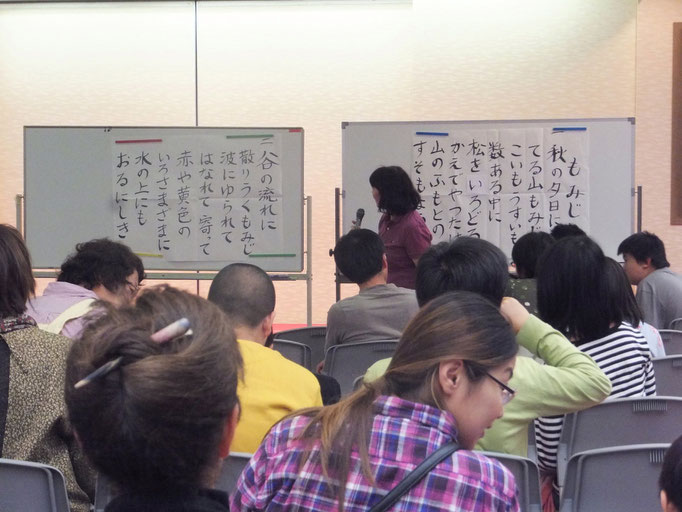 もみじ
一 秋の夕日に
てる山もみじ
こいもうすいも
数ある中に
松をいろど
かえでやつたは
山のふもとの
すそもよ
二 谷の流れに
散りうくもみじ
波にゆられて
はなれて 寄って
赤や黄色の
いろさまざまに
水の上にも
おるにしき